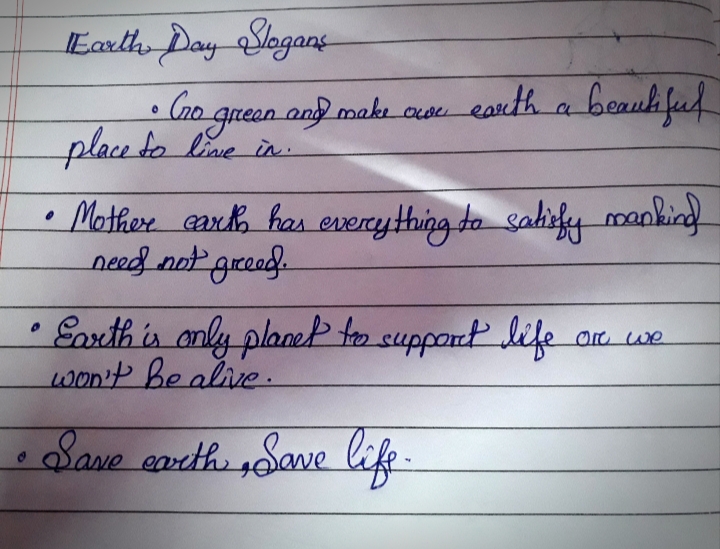 Earth Day Slogans
• Go green and make our earth a beautiful
place to live in.
• Mother earth has everything to satisfy mankind
need not greed.
• Earth is only planet to support life or we
won't Be alive.
• Save earth, Save life.